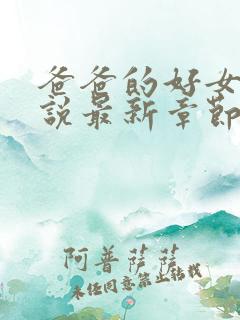 爸爸的好女
说最新章节
阿普萨萨
未经同意禁止转载